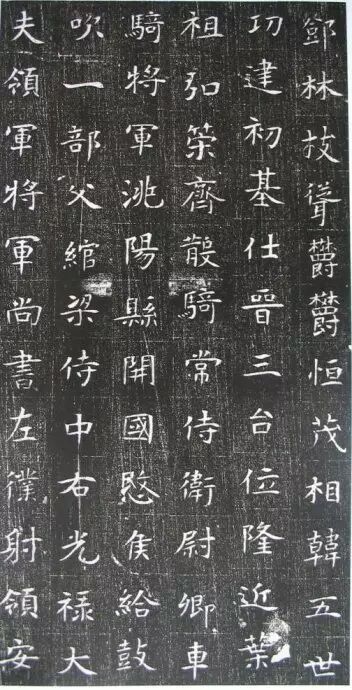 鄧林技聳欝欝恒茂相韓五世
功建初基仕晉三台位隆近葉
祖弘策齊散騎常侍衛尉卿車
騎將軍洮陽縣開國愍侯給鼓
吹一部父綰梁侍中右光祿大
夫領軍將軍尚書左僕射領安